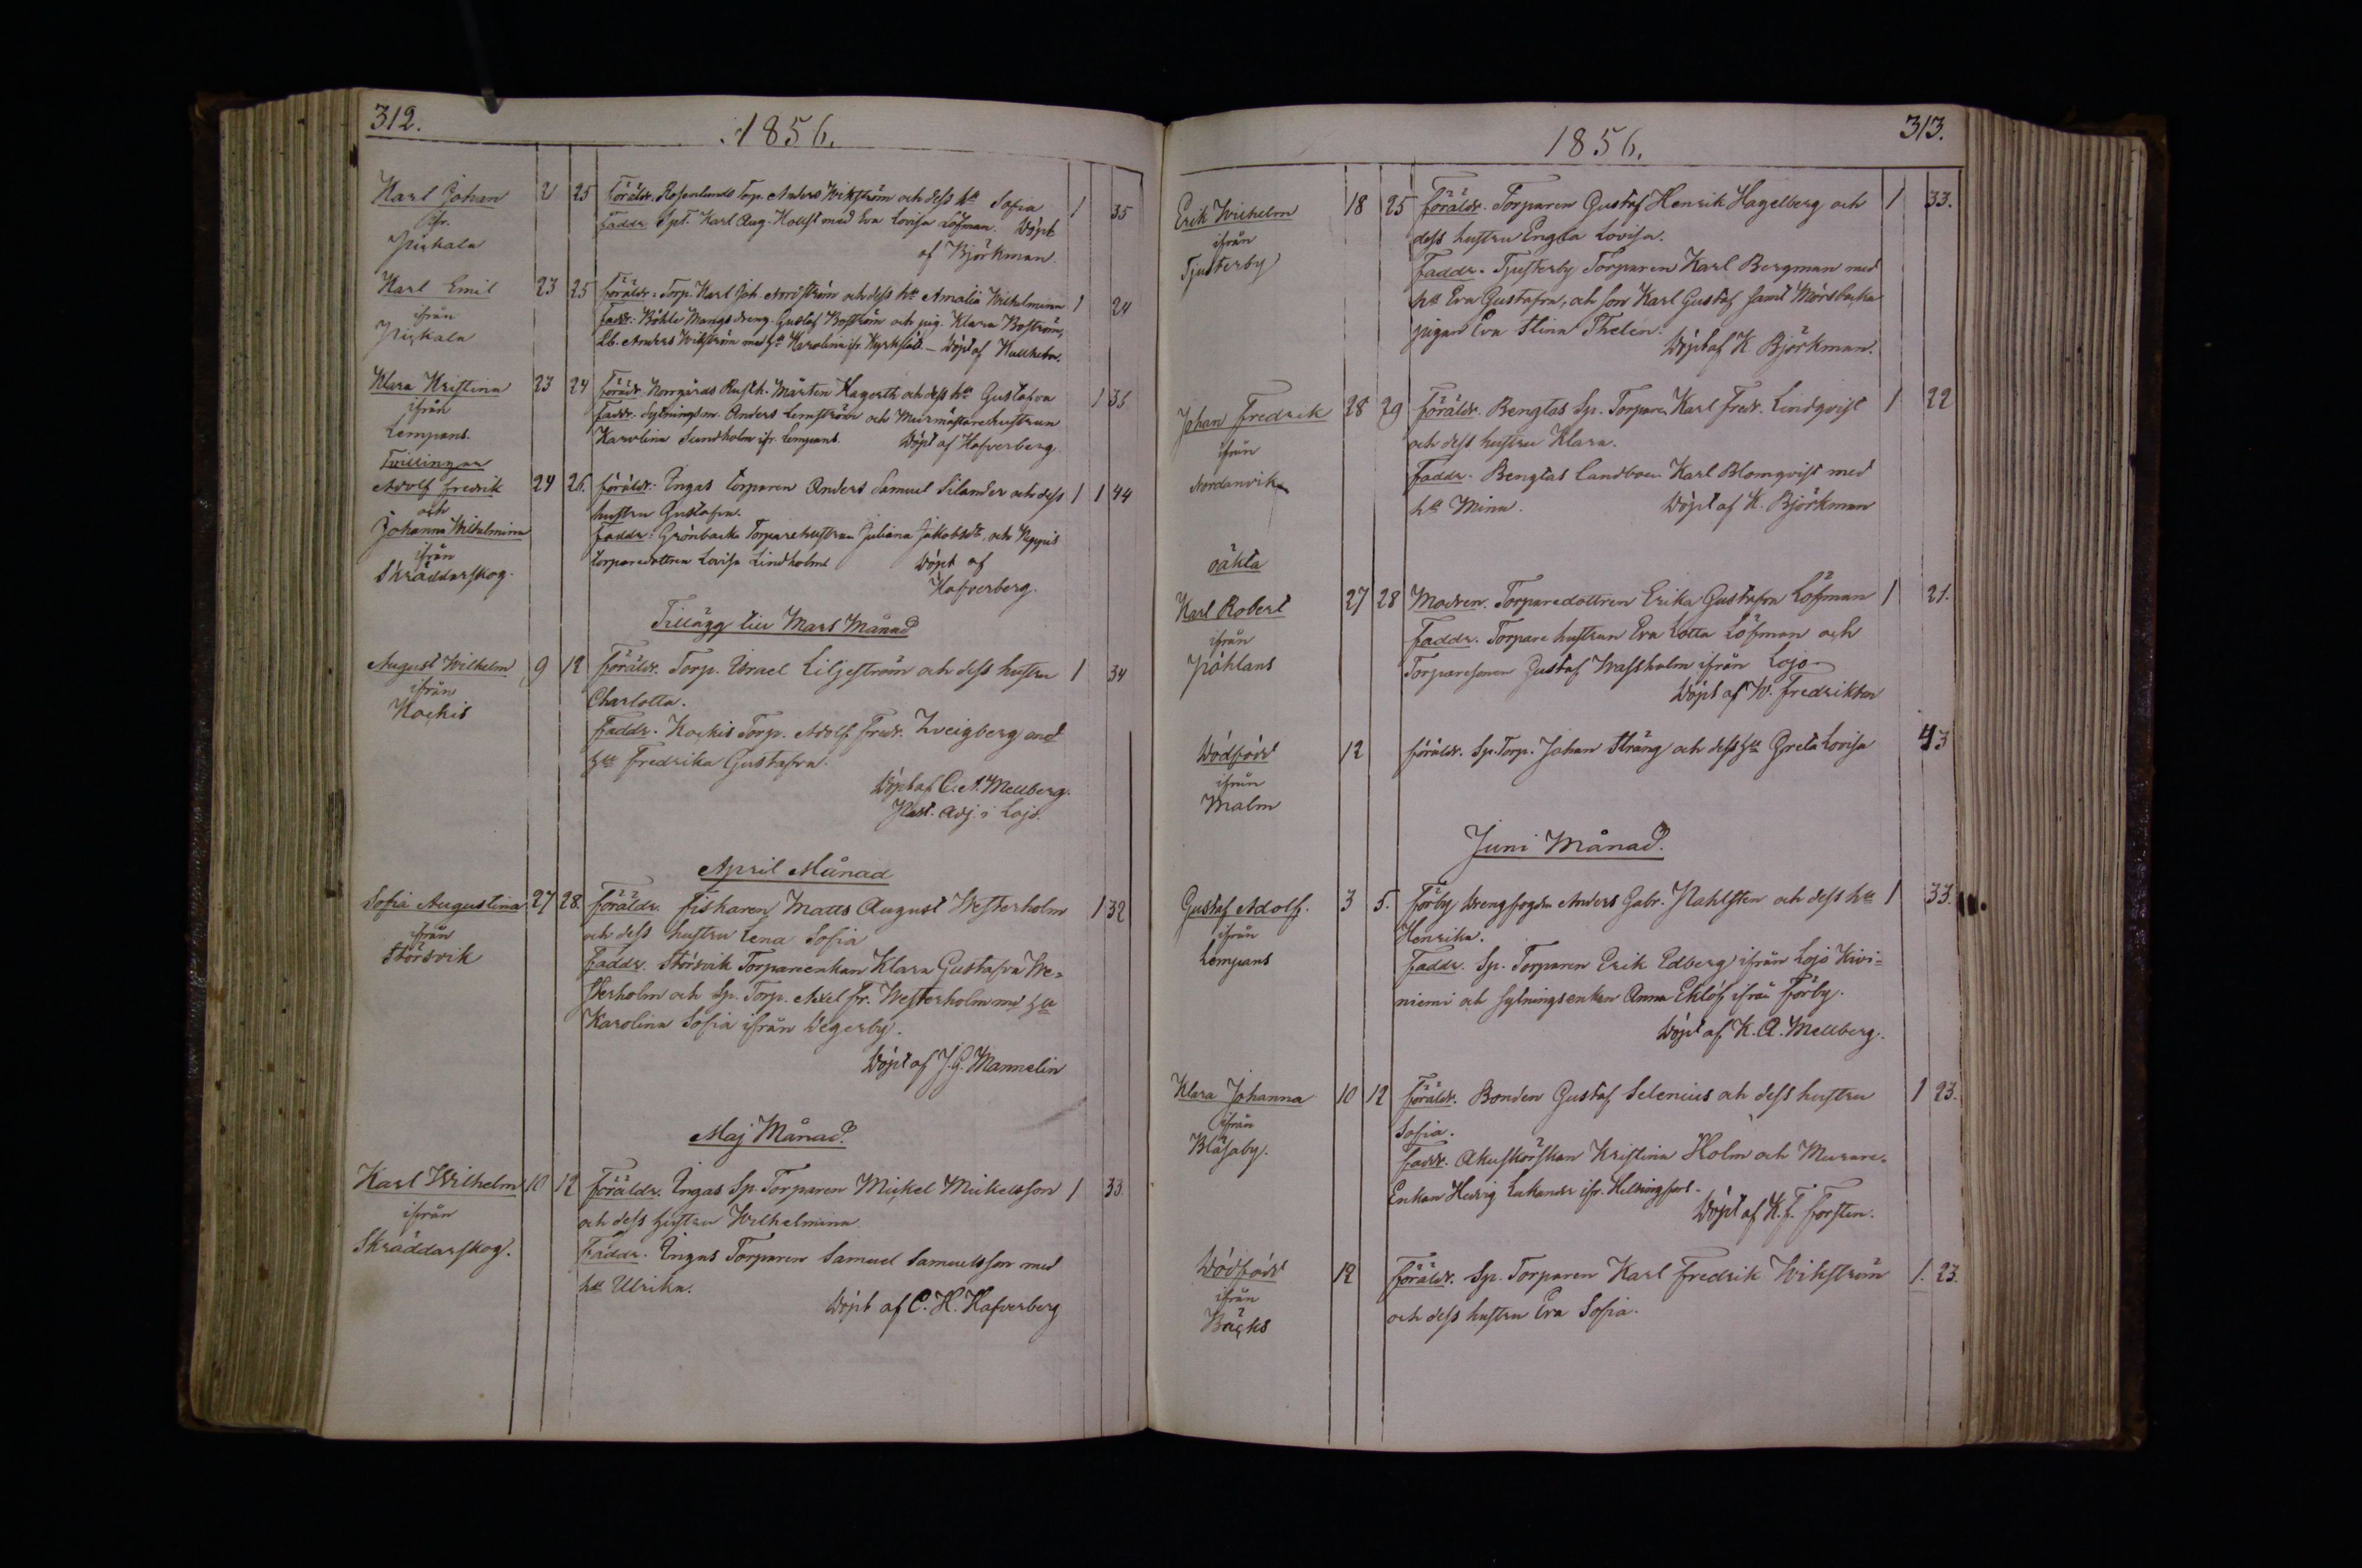 312.
1856.
Karl Johan 21 25 Föräldr. Rosenlunds Torp. Anders Wikström och dess hu Sofia 1 35
ifr. Faddr. Spt. Karl Aug. Hollst med Eva Lovisa Löfman. Döpt
Pickala af Björkman.
Karl Emil 23 25 Föräldr: Torp. Karl Joh. Nordström och dess hu Amalia Wilhelmina 1 24
ifrån Faddr: Böhle Mangs dreng Gustaf Boström och pig. Klara Boström,
Pickala Anders Wikström med hu Karolina ifr. Kyrkslätt - Döpt af
Klara Kristina 23 24 Föräldr. Norrgårds Rusth. Mårten Hagerth och dess hu Gustafva 1 35
ifrån Faddr. Sytningsm. Anders Lemström och Murmästarehustrun
Lempans. Karolina Sundholm ifr. Lempans. Döpt af Hafverberg
Tvillingar
Adolf Fredrik 24 26. Föräldr: Ingas torparen Anders Samuel Silander och dess 1 1 44
och hustru Gustafva.
Johanna Wilhelmina Faddr: Grönbacka Torparehustrun Juliana Jakobsdr, och
ifrån torparedottren Lovisa Lindholm Döpt af
Skräddarskog. Hafverberg.
Tillägg till Mars Månad
August Wilhelm 9 12 Föräldr. Torp. Israel Liljeström och dess hustru 1 34
ifrån Charlotta.
Kockis Faddr. Kockis Torp. Adolf Fredr. Zweigberg med
hu Fredrika Gustafva.
Döpt af C. A. Mellberg.
Past. Adj. i Lojo.
April Månad
Sofia Augustina 27 28. Föräldr. Fiskaren Matts August Westerholm 1 32
ifrån och dess hustru Lena Sofia
Störsvik Faddr. Störsvik Torpareenkan Klara Gustafva We=
sterholm och Sp. Torp. Axel Fr. Westerholm med hu
Karolina Sofia ifrån Degerby.
Döpt af J. G. Mannelin
Maj Månad.
Karl Wilhelm 10 12 Föräldr. Ingas Sp. Torparen Mickel Mickelsson 1 33.
ifrån och dess hustru Wilhelmina
Skräddarskog. Faddr. Ingas Torparen Samuel Samuelsson med
hu Ulrika.
Döpt af C. H. Hafverberg
313.
1856.
Erik Wilhelm 18 25 Föräldr. Torparen Gustaf Henrik Hagelberg och 1 33.
ifrån dess hustru Engla Lovisa.
Tjusterby Faddr. Tjusterby Torparen Karl Bergman med
hu Eva Gustafva, och son Karl Gustaf samt Mörsbacka
pigan Eva Stina Thelén. Döpt af K. Björkman.
Johan Fredrik 28 29 Föräldr. Bengtas Sp. Torparen Karl Fredr. Lindqvist 1 22
ifrån och dess hustru Klara.
Nordanvik Faddr. Bengtas Landboen Karl Blomqvist med
hu Mina. Döpt af K. Björkman
oäkta
Karl Robert 27 28 Modren. Torparedottren Erika Gustafva Löfman 1 21.
ifrån Faddr. Torpare hustrun Eva Lotta Löfman och
Påhlans Torparesonen Gustaf Wassholm ifrån Lojo
Döpt af W. Fredrikson
Dödfödt 12 Föräldr. Sp. Torp. Johan Sträng och dess hu Greta Lovisa 43
ifrån
Malm
Juni Månad.
Gustaf Adolf. 3 5. Förby drengfogden Anders Gabr. Pahlsten och dess hu 1 33.
ifrån Henrika.
Lempans Faddr. Sp. Torparen Erik Edberg ifrån Lojo Kivi=
niemi och sytningsenkan Anna Eklöf ifrån Förby.
Döpt af K. A. Mellberg.
Klara Johanna 10 12 Föräldr. Bonden Gustaf Selenius och dess hustru 1 23.
ifrån Sofia.
Blåsaby. Faddr. Akuskörskan Kristina Holm och Murare-
Enkan Hedvig ifr. Helsingfors.
Döpt af K. F. Forsten.
Dödfödt 12 Föräldr. Sp. Torparen Karl Fredrik Wikström 1. 23.
ifrån och dess hustru Eva Sofia.
Bäcks